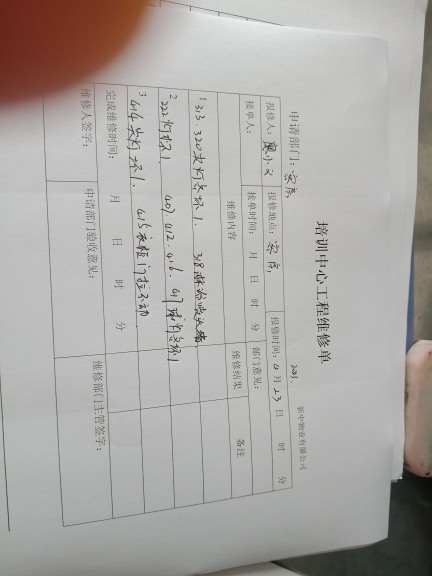 新中物业有限公司
培训中心工程维修单
申请部门：客房
报修人： 报修地点：客房 报修时间： 月23日 时 分
接单人： 接单时间： 月 日 时 分 部门意见：
维修内容 维修结果 备注
1 313.320 灯各坏1.
2 222灯坏1. 407.412.416.417 各坏1
3 414 灯坏1. 415衣柜门拉不动.
完成维修时间： 月 日 时 分
维修人签字： 申请部门验收意见： 维修部门主管签字：